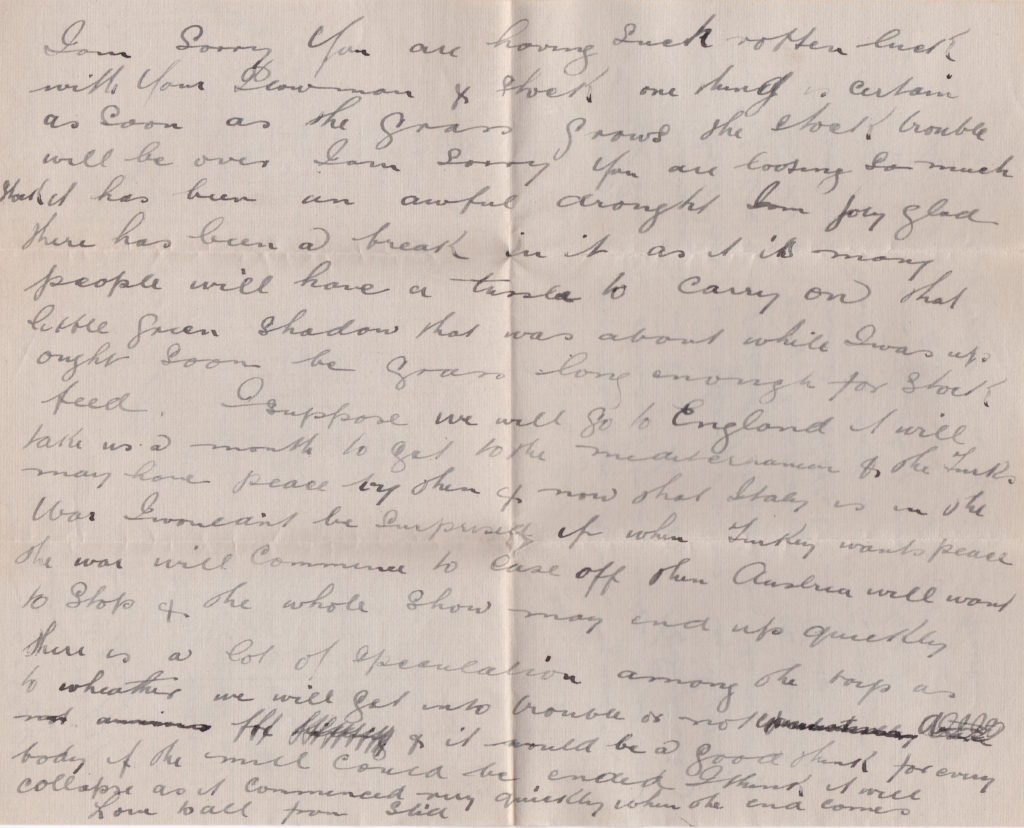 I am Sorry You are having Such rotten luck
with Your Plowman & Stock. one thing is certain
as Soon as the grass grows the stock trouble
will be over I am Sorry You are loosing So much
Stock it has been an awful drought I am joly glad
there has been a break in it as it is many
people will have a tussle to carry on that
little green shadow that was about while I was up
ought Soon be grass long enough for stock
feed. I suppose we will go to England it will
take us a month to get to the mediterranean & the Turks
may have peace by then & now that Italy is in the
War I wouldn't be Surprised if when Turkey wants peace
the war will commence to Ease off then Austria will want
to Stop & the whole Show may end up quickly
there is a lot of speculation among the troops as
to wheather we will get into trouble or not
not & it would be a good think for every
body if the mill could be ended I think it will
collapse as it commenced very quickly when the end comes
Love to all from Stid